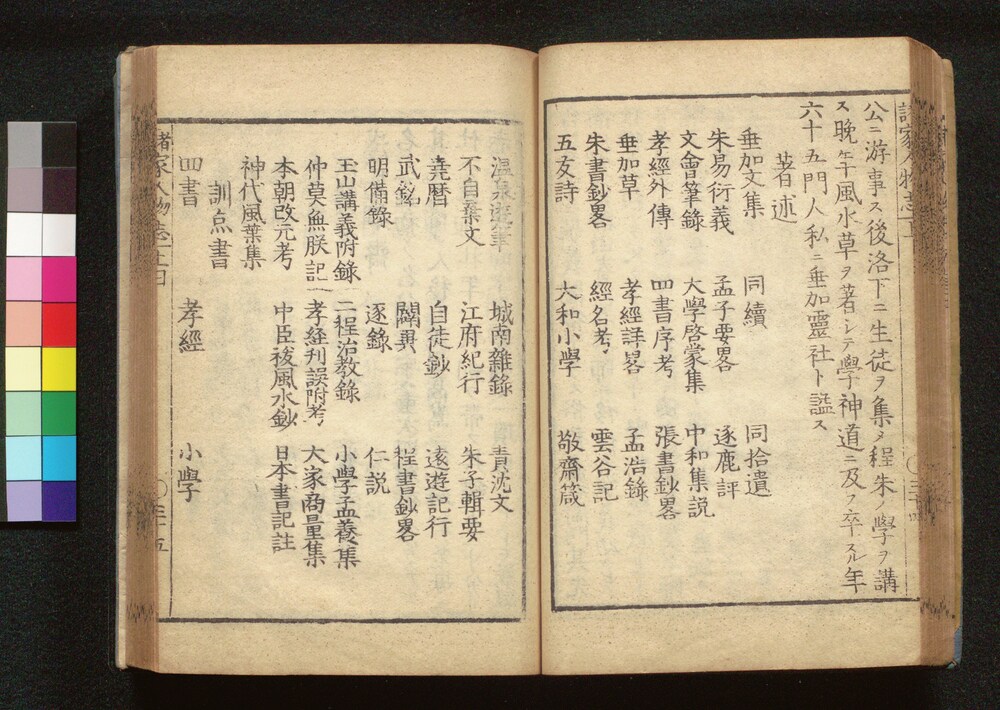 公ニ游事ス後洛下ニ生徒ヲ集メ程朱ノ學ヲ講
ス晩年風水草ヲ著シテ學神道ニ及フ卒スル年
六十五門人私ニ垂加靈社ト諡ス
著述
垂加文集 同續 同拾遺
朱易衍義 孟子要畧 逐鹿評
文會筆錄 大學啓蒙集 中和集説
孝經外傳 四書序考 張書鈔畧
垂加草 孝經詳畧 孟浩錄
朱書鈔畧 經名考 雲谷記
五友詩 大和小學 敬齋箴
温泉遊筆 城南雜錄 責沈文
不自棄文 江府紀行 朱子輯要
堯暦 自徒鈔 遠遊記行
武銘 闢異 程書鈔畧
明備錄 逐錄 仁説
玉山講義附錄 二程治教錄 小學孟養集
仲莫無朕記 孝經刋誤附考 大家商量集
本朝改元考 中臣祓風水鈔 日本書記註
神代風葉集
訓点書
四書 孝經 小學
諸家人物志
三十五